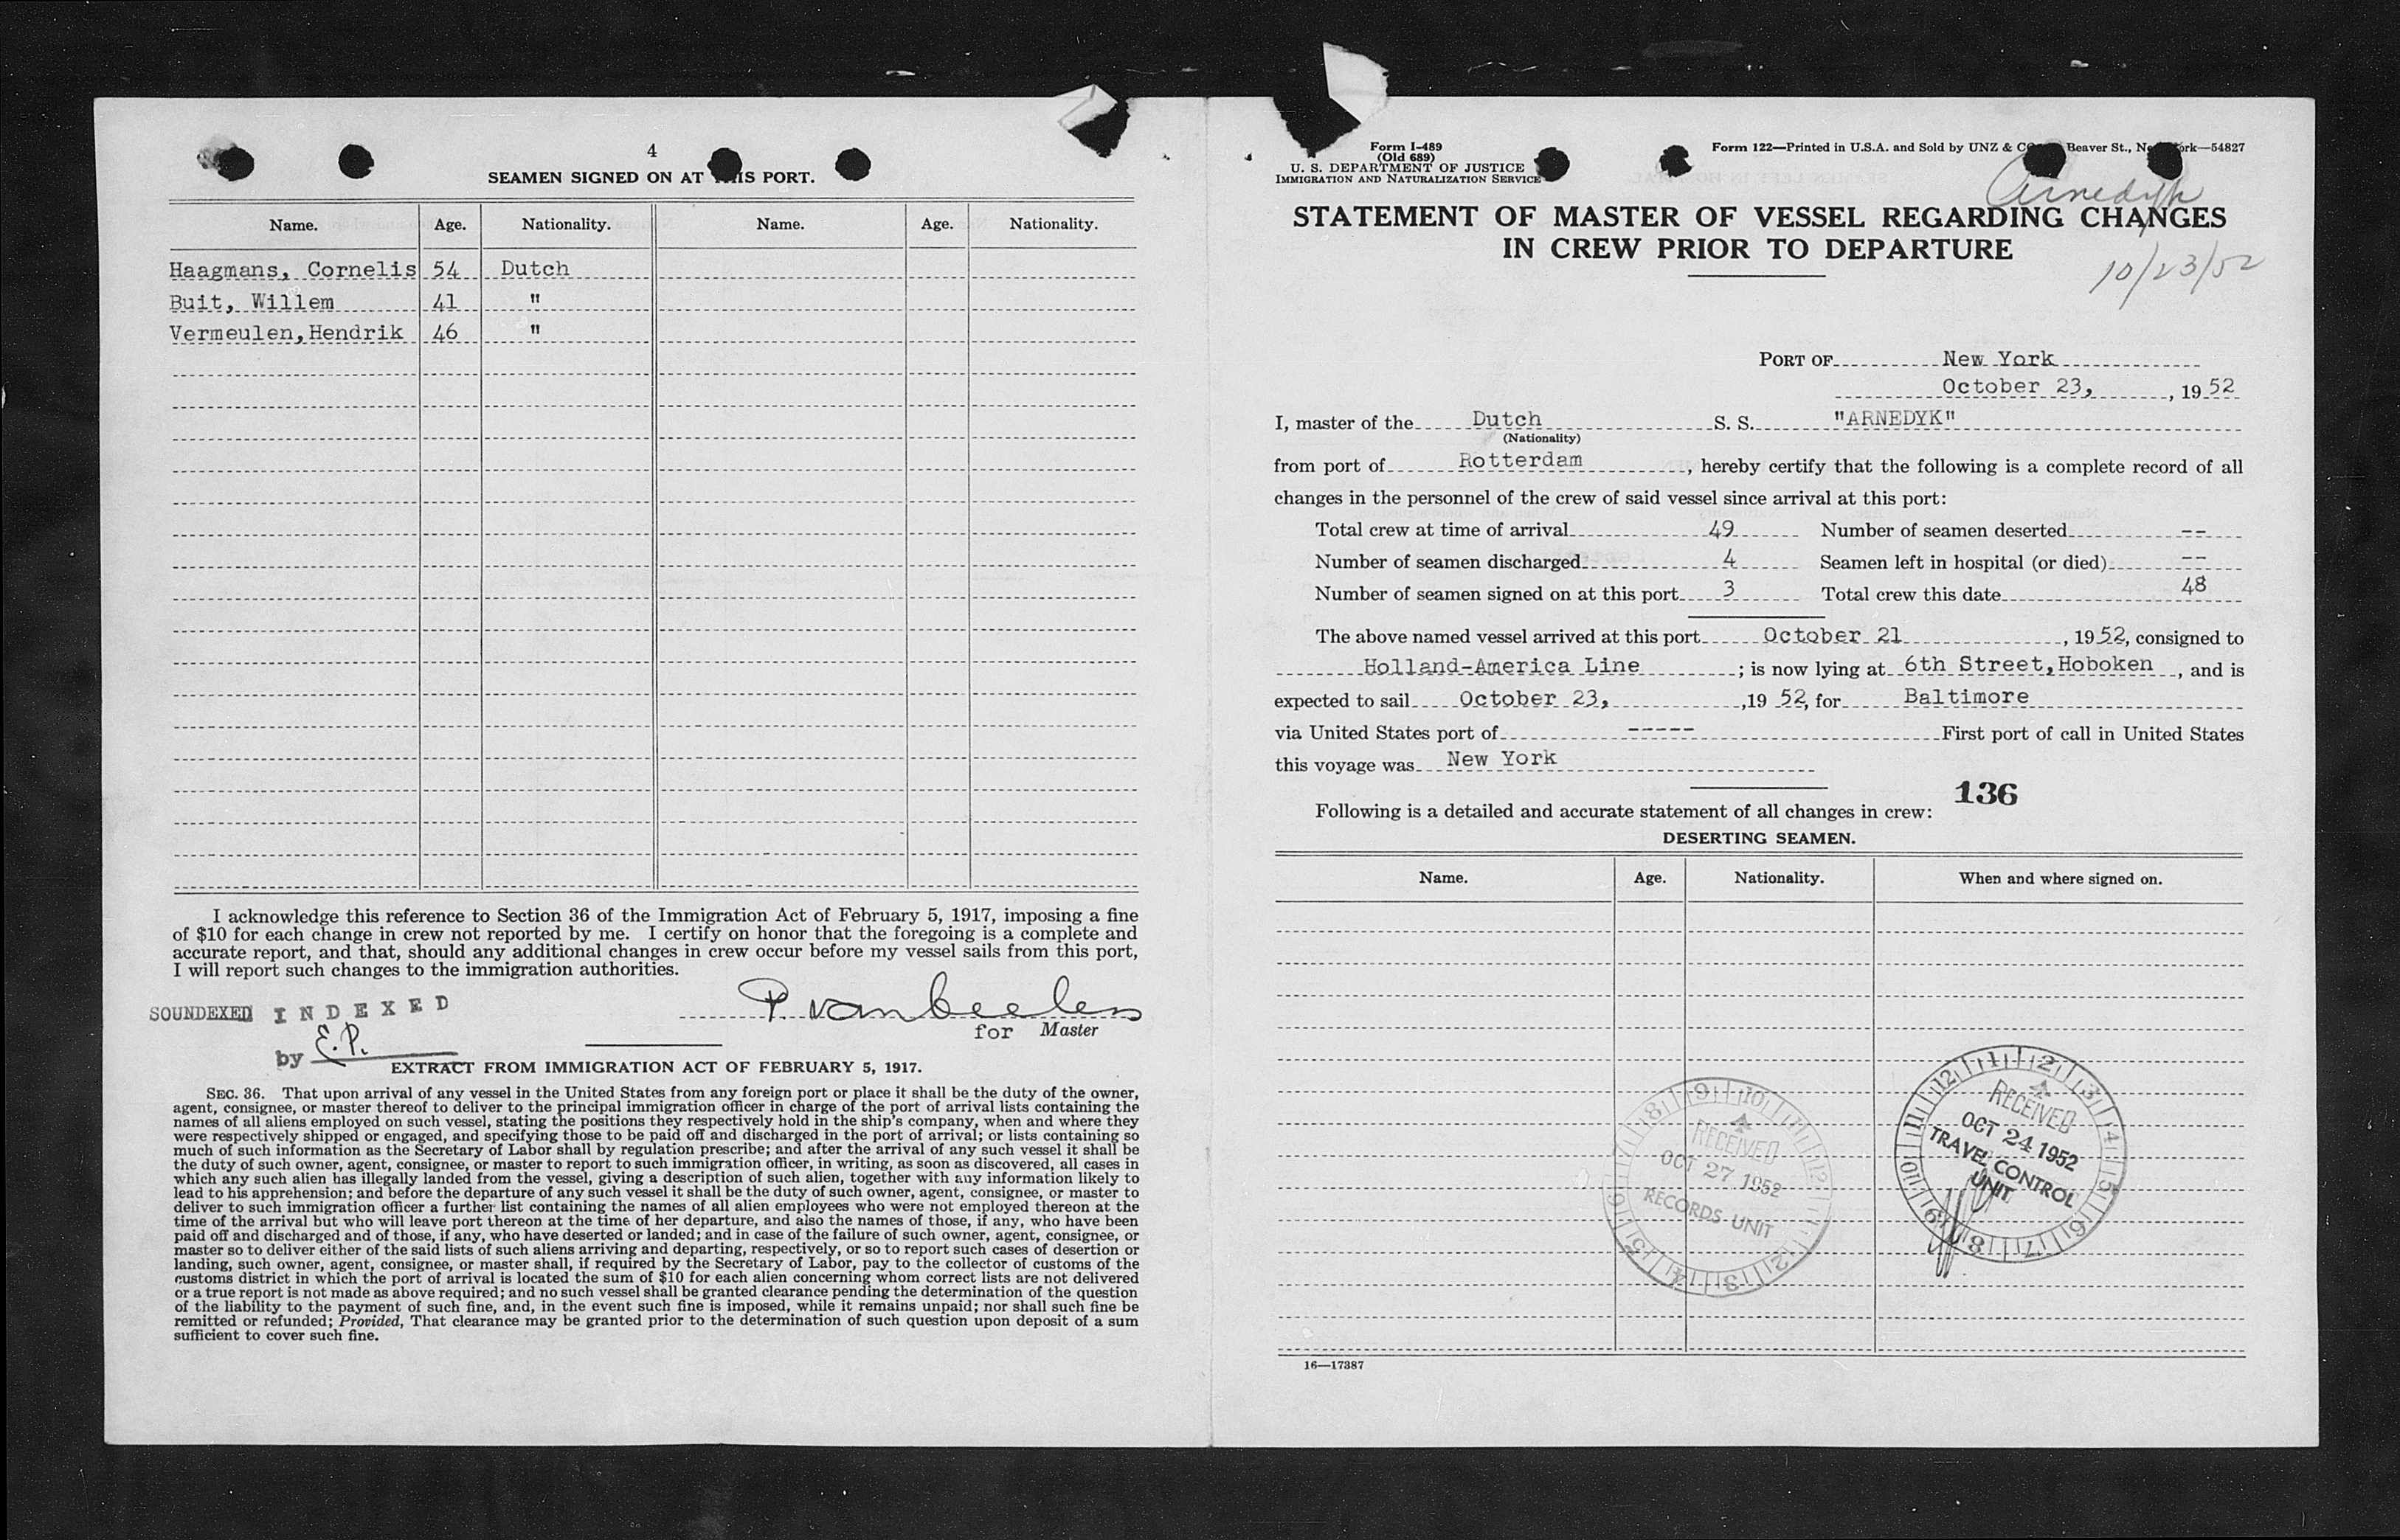 4
SEAMEN SIGNED ON AT THIS PORT.
Name. Age. Nationality. Name. Age. Nationality.
Haagmans, Cornelis 54 Dutch
Buit, Willem 41 "
Vermeulen, Hendrik 46 "
I acknowledge this reference to Section 36 of the Immigration Act of February 5, 1917, imposing a fine
of $10 for each change in crew not reported by me. I certify on honor that the foregoing is a complete and
accurate report, and that, should any additional changes in crew occur before my vessel sails from this port,
I will report such changes to the immigration authorities.
SOUNDEXED INDEXED
by E.P.
P. van Beelen
for Master
EXTRACT FROM IMMIGRATION ACT OF FEBRUARY 5, 1917.
SEC. 36. That upon arrival of any vessel in the United States from any foreign port or place it shall be the duty of the owner,
agent, consignee, or master thereof to deliver to the principal immigration officer in charge of the port of arrival lists containing the
names of all aliens employed on such vessel, stating the positions they respectively hold in the ship's company, when and where they
were respectively shipped or engaged, and specifying those to be paid off and discharged in the port of arrival; or lists containing so
much of such information as the Secretary of Labor shall by regulation prescribe; and after the arrival of any such vessel it shall be
the duty of such owner, agent, consignee, or master to report to such immigration officer, in writing, as soon as discovered, all cases in
which any such alien has illegally landed from the vessel, giving a description of such alien, together with any information likely to
lead to his apprehension; and before the departure of any such vessel it shall be the duty of such owner, agent, consignee, or master to
deliver to such immigration officer a further list containing the names of all alien employees who were not employed thereon at the
time of the arrival but who will leave port thereon at the time of her departure, and also the names of those, if any, who have been
paid off and discharged and of those, if any, who have deserted or landed; and in case of the failure of such owner, agent, consignee, or
master so to deliver either of the said lists of such aliens arriving and departing, respectively, or so to report such cases of desertion or
landing, such owner, agent, consignee, or master shall, if required by the Secretary of Labor, pay to the collector of customs of the
customs district in which the port of arrival is located the sum of $10 for each alien concerning whom correct lists are not delivered
or a true report is not made as above required; and no such vessel shall be granted clearance pending the determination of the question
of the liability to the payment of such fine, and, in the event such fine is imposed, while it remains unpaid; nor shall such fine be
remitted or refunded; Provided, That clearance may be granted prior to the determination of such question upon deposit of a sum
sufficient to cover such fine.
Form I-489
(Old 689)
U. S. DEPARTMENT OF JUSTICE
IMMIGRATION AND NATURALIZATION SERVICE
Form 122—Printed in U.S.A. and Sold by UNZ & CO. Beaver St., New York—54827
Arnedyk
STATEMENT OF MASTER OF VESSEL REGARDING CHANGES
IN CREW PRIOR TO DEPARTURE
10/23/52
PORT OF New York
October 23, , 19 52
I, master of the Dutch S. S. "ARNEDYK"
(Nationality)
from port of Rotterdam , hereby certify that the following is a complete record of all
changes in the personnel of the crew of said vessel since arrival at this port:
Total crew at time of arrival 49 Number of seamen deserted --
Number of seamen discharged 4 Seamen left in hospital (or died) --
Number of seamen signed on at this port 3 Total crew this date 48
The above named vessel arrived at this port October 21 , 19 52, consigned to
Holland-America Line ; is now lying at 6th Street, Hoboken , and is
expected to sail October 23, ,19 52, for Baltimore
via United States port of ----- First port of call in United States
this voyage was New York
136
Following is a detailed and accurate statement of all changes in crew:
DESERTING SEAMEN.
Name. Age. Nationality. When and where signed on.
9 10 11 12 1 2 3 4 5 6 7 8
RECEIVED
OCT 27 1952
RECORDS UNIT
12 1 2 3 4 5 6 7 8 9 10 11
RECEIVED
OCT 24 1952
TRAVEL CONTROL
UNIT
16—17387